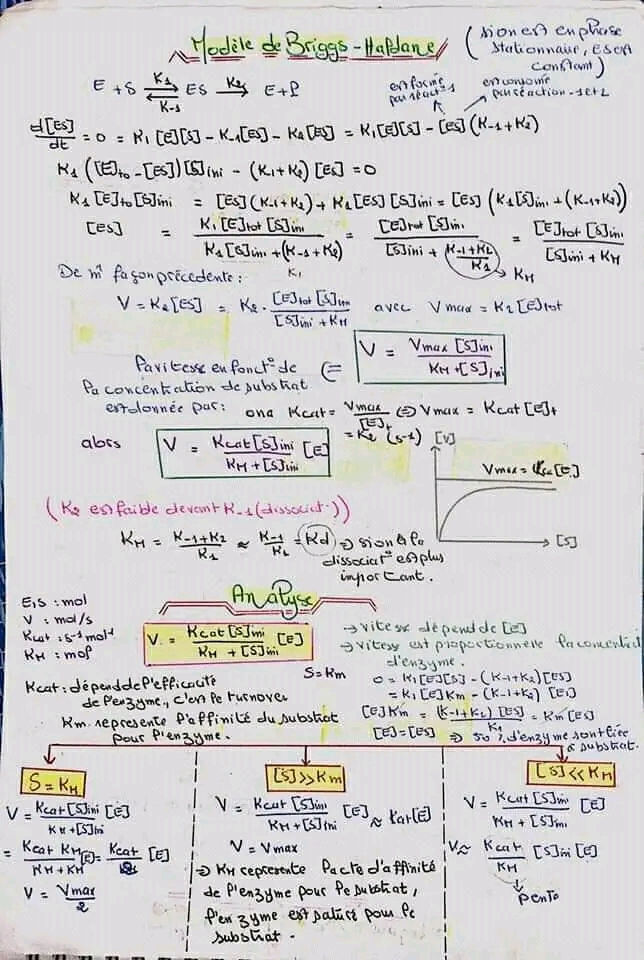 Modèle de Briggs-Haldane
( si on est en phase
stationnaire, ES est
constant )
E + S ⇌ ES → E + P
K1
K-1
K2
est formé
par réact° 1
est consommé
par réaction -1 et 2
d[ES]/dt = 0 = K1[E][S] - K-1[ES] - K2[ES] = K1[E][S] - [ES](K-1+K2)
K1([E]to - [ES])[S]ini - (K1+K2)[ES] = 0
K1[E]to[S]ini = [ES](K-1+K2) + K1[ES][S]ini = [ES](K1[S]ini + (K-1+K2))
[ES] = K1[E]tot[S]ini / K1[S]ini + (K-1+K2) = [E]tot[S]ini / [S]ini + (K-1+K2)/K1 = [E]tot[S]ini / [S]ini + KM
K1
→ KM
De m̂ façon précédente :
V = K2[ES] = K2 · [E]tot[S]ini / [S]ini + KM avec Vmax = K2[E]tot
V = Vmax[S]ini / KM + [S]ini
la vitesse en fonct° de (=
la concentration de substrat
est donnée par : on a Kcat = Vmax/[E]t ⇔ Vmax = Kcat[E]t
= K2 (s-1)
alors V = Kcat[S]ini / KM + [S]ini [E]
[V]
Vmax = Kcat[E]
[S]
( K2 est faible devant K-1 (dissociat°))
KM = K-1+K2 / K1 ≈ K-1 / K1 = Kd ⇒ si on a la
dissociat° est plus
important.
Analyse
E,S : mol
V : mol/s
Kcat : s-1 mol-1
KM : mol
V = Kcat[S]ini / KM + [S]ini [E]
→ vitesse dépend de [E]
→ vitesse est proportionnelle la concentrat
d'enzyme.
S = Km
0 = K1[E][S] - (K-1+K2)[ES]
= K1[E]Km - (K-1+K2)[ES]
[E]Km = (K-1+K2)[ES] / K1 = Km[ES]
[E] = [ES] ⇒ 50% d'enzyme sont liée
a substrat.
Kcat : dépend de l'efficacité
de l'enzyme, c'est le turnover
Km représente l'affinité du substrat
pour l'enzyme.
S = KM
V = Kcat[S]ini / KM + [S]ini [E]
= Kcat KM / KM + KM [E] = Kcat / 2 [E]
V = Vmax / 2
[S] >> Km
V = Kcat[S]ini / KM + [S]ini [E] ≈ Kcat[E]
V = Vmax
⇒ KM represente l'acte d'affinité
de l'enzyme pour le substrat,
l'enzyme est saturé pour le
substrat.
[S] << KM
V = Kcat[S]ini / KM + [S]ini [E]
V ≈ Kcat / KM [S]ini [E]
pente